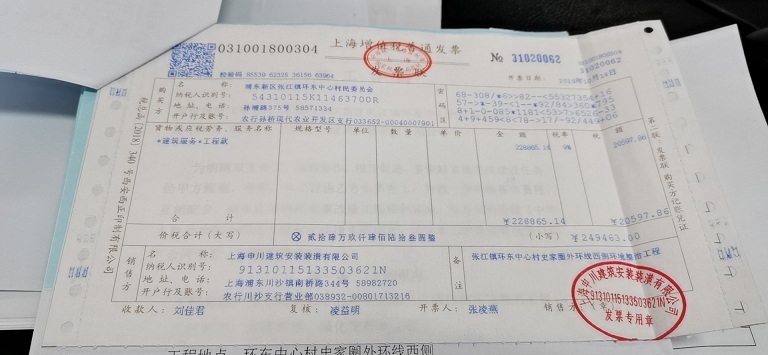 031001800304 上海增值税普通发票 № 31020062
校验码 85539 62325 36156 63964 开票日期:
购买方 名称: 浦东新区张江镇环东中心村民委员会
纳税人识别号: 54310115K11463700R
地址、电话: 孙桥路375号 58571334
开户行及账号: 农行孙桥现代农业开发区支行033682-00040007901
密码区
货物或应税劳务、服务名称 规格型号 单位 数量 单价 金额 税率 税额
*建筑服务*工程款 228865.14 9% 20597.86
合计 ¥228865.14 ¥20597.86
价税合计(大写) ⊗ 贰拾肆万玖仟肆佰陆拾叁圆整 (小写) ¥249463.00
销售方 名称: 上海申川建筑安装装潢有限公司
纳税人识别号: 91310115133503621N
地址、电话: 上海浦东川沙镇南桥路344号 58982720
开户行及账号: 农行川沙支行营业部038932-00801713216
备注 张江镇环东中心村史家圈外环线西侧环境整治工程
收款人: 刘佳君 复核: 凌益明 开票人: 张凌燕 销售方:(章)
上海申川建筑安装装潢有限公司
91310115133503621N
发票专用章
第二联:发票联 购买方记账凭证
工程地点 环东中心村史家圈外环线西侧